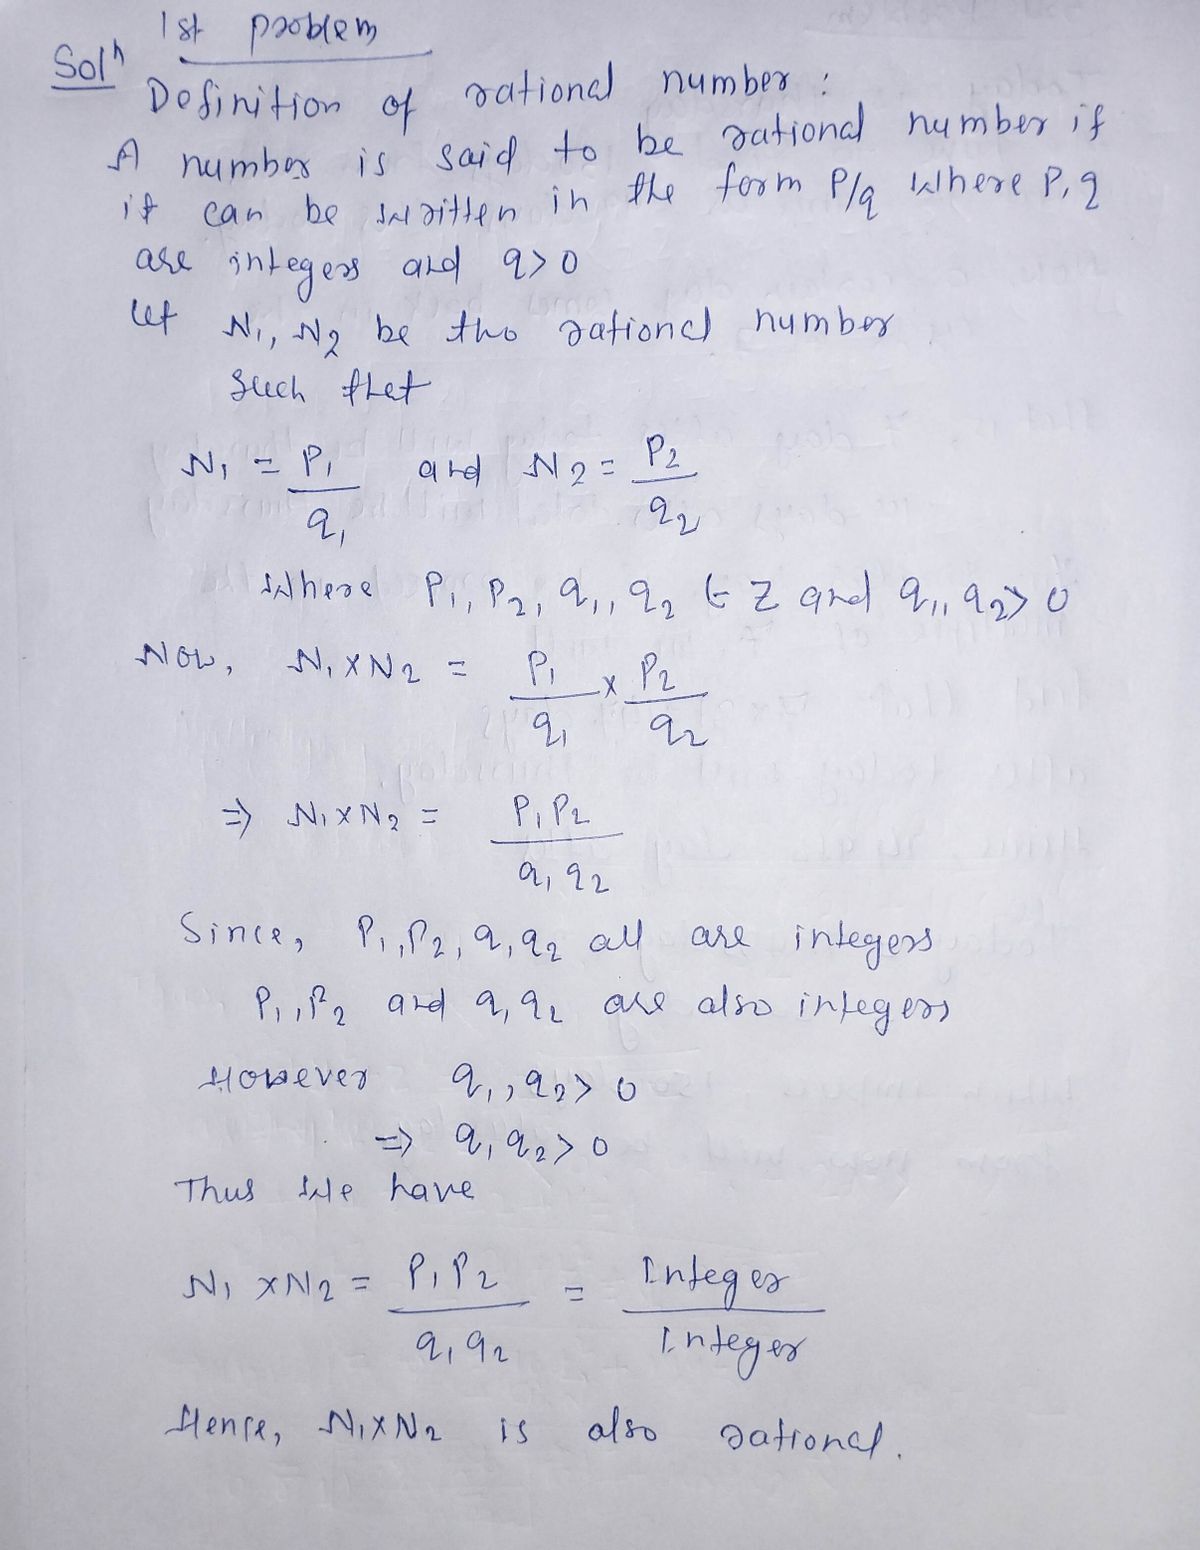 1st problem
Solⁿ
Definition of rational number :
A number is said to be rational number if
it can be written in the form P/q where P, q
are integers and q > 0
let N₁, N₂ be two rational number
such that
N₁ = P₁/q₁ and N₂ = P₂/q₂
where P₁, P₂, q₁, q₂ ∈ Z and q₁, q₂ > 0
Now, N₁ × N₂ = P₁/q₁ × P₂/q₂
⇒ N₁ × N₂ = P₁P₂/q₁q₂
Since, P₁, P₂, q₁, q₂ all are integers
P₁, P₂ and q₁ q₂ are also integers
However q₁, q₂ > 0
⇒ q₁ q₂ > 0
Thus we have
N₁ × N₂ = P₁P₂/q₁q₂ = Integer/Integer
Hence, N₁×N₂ is also rational.